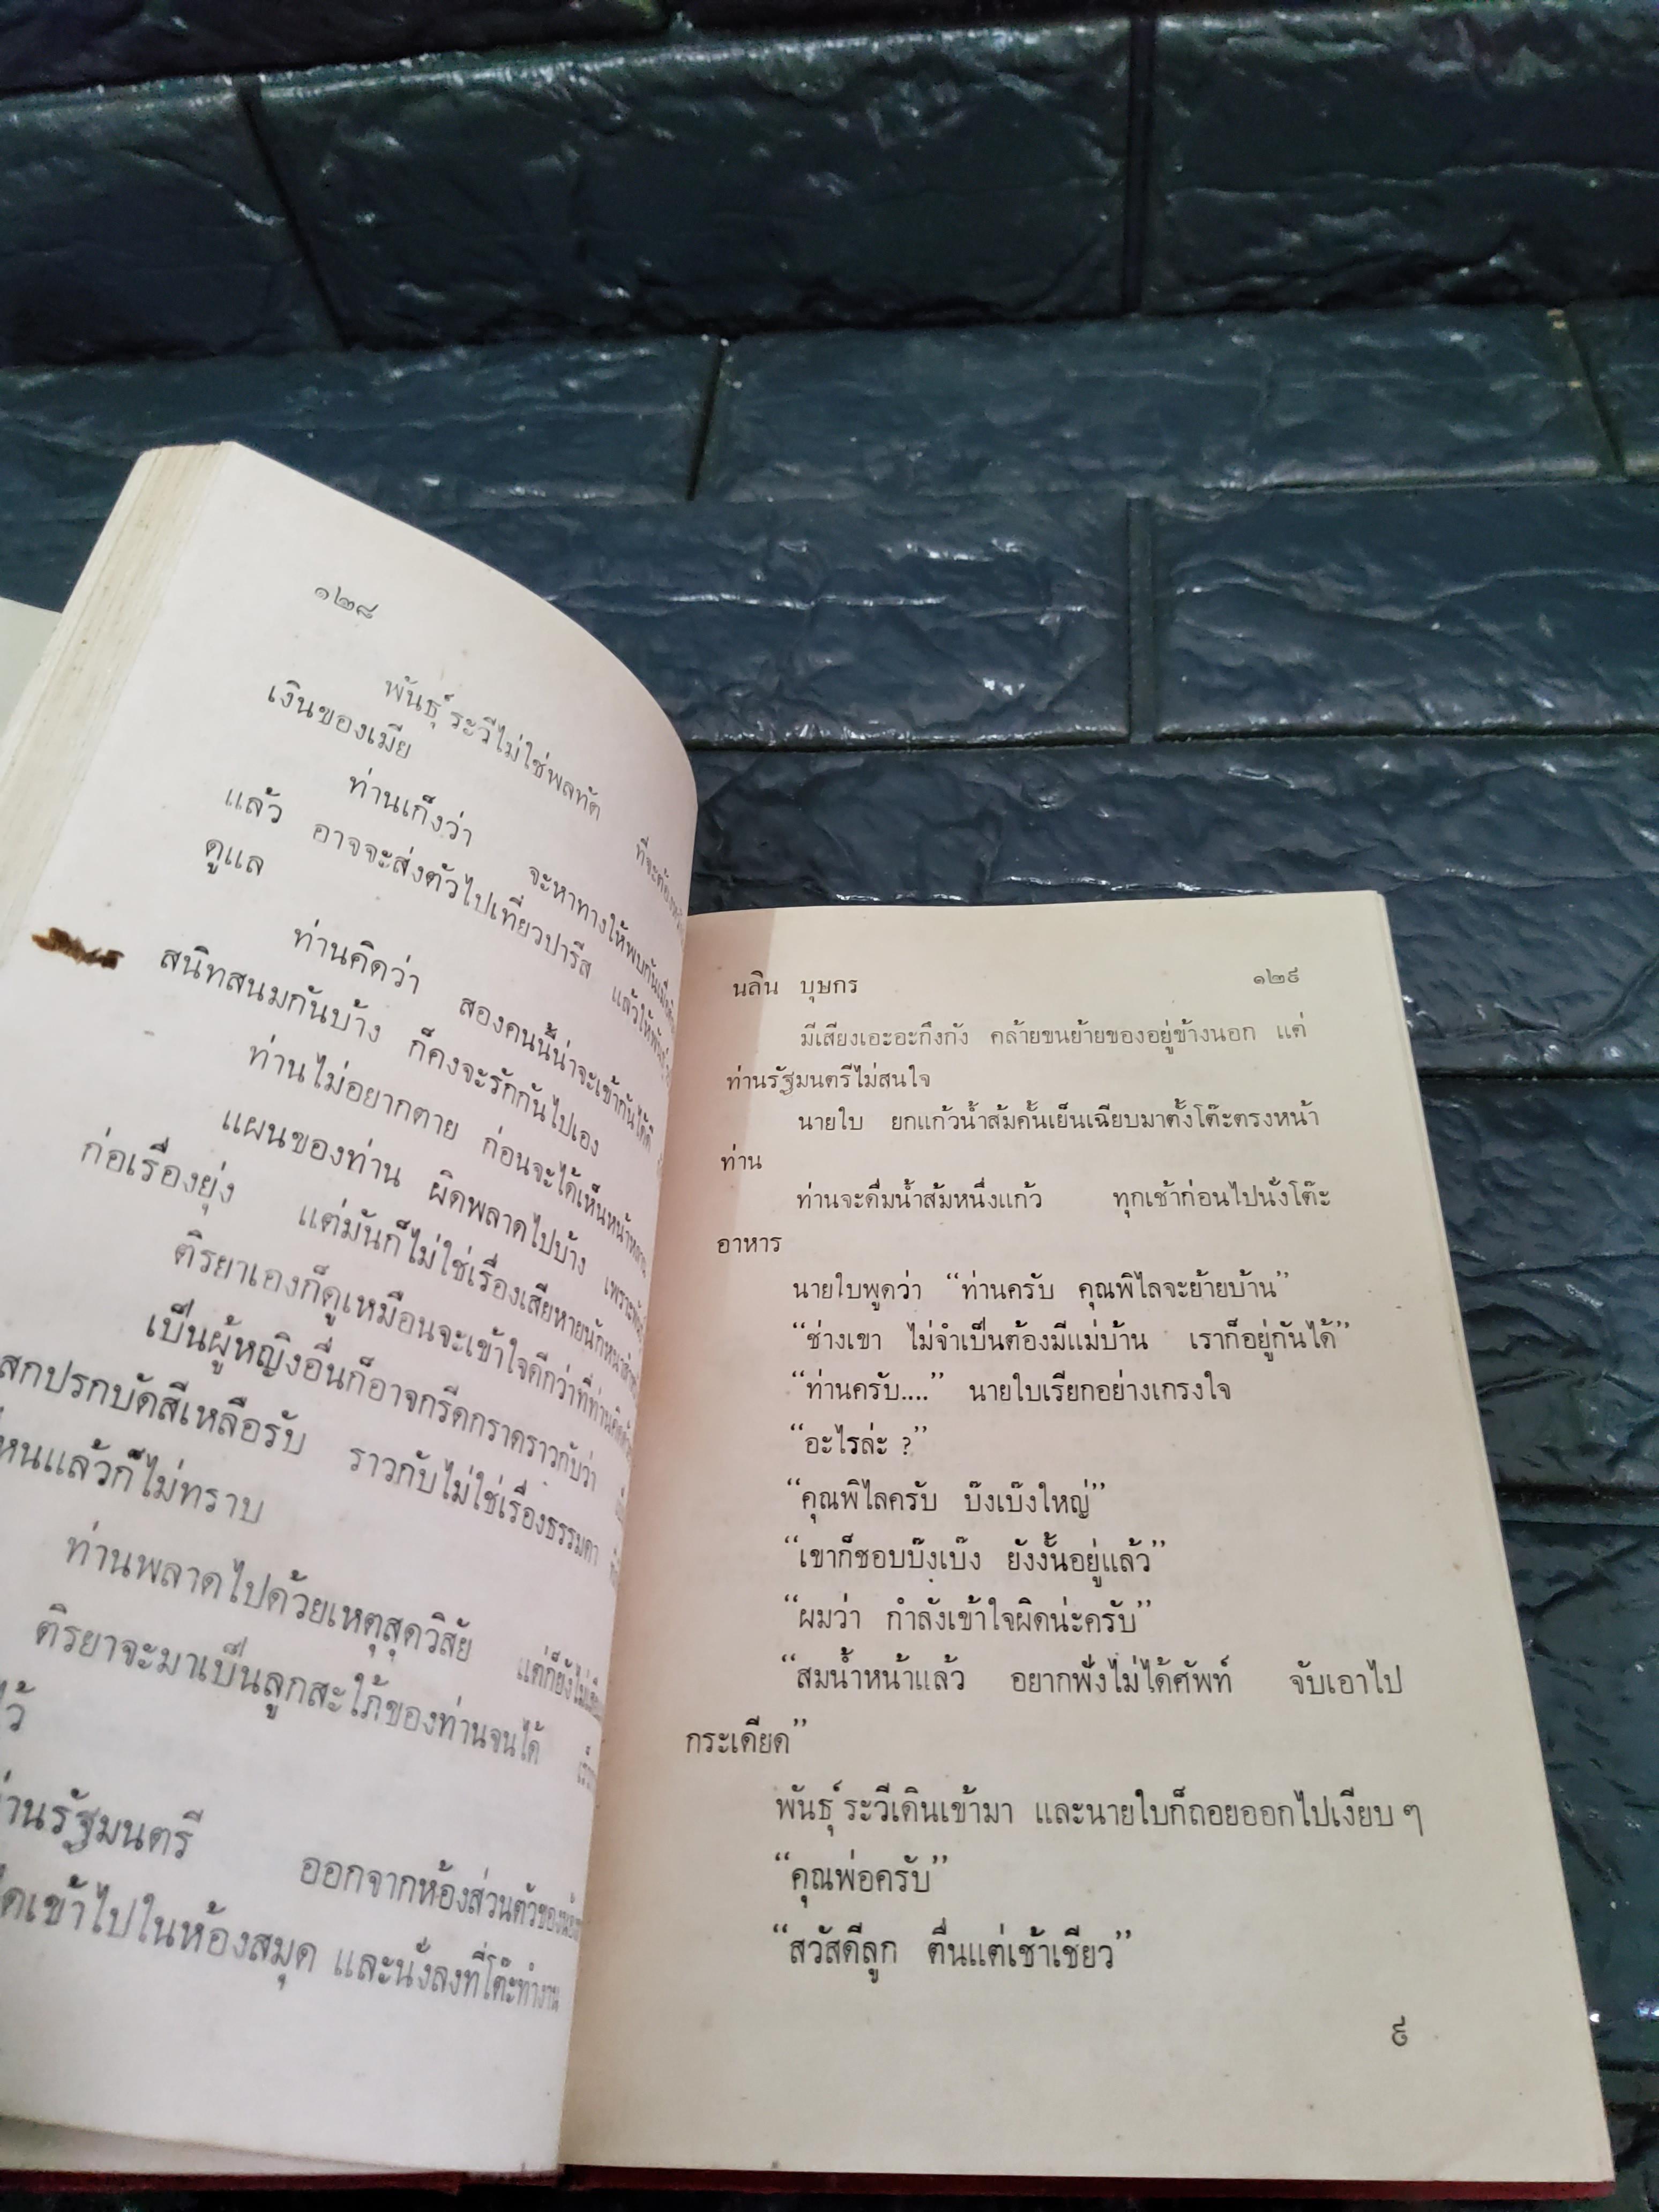 ๑๒๘
พันธุ์ระวีไม่ใช่พลทัต ที่จะต้อง
เงินของเมีย
ท่านเก็งว่า จะหาทางให้พบกัน
แล้ว อาจจะส่งตัวไปเที่ยวปารีส แล้วให้
ดูแล
ท่านคิดว่า สองคนนี้น่าจะเข้ากันได้ดี
สนิทสนมกันบ้าง ก็คงจะรักกันไปเอง
ท่านไม่อยากตาย ก่อนจะได้เห็นหน้าหลาน
แผนของท่าน ผิดพลาดไปบ้าง เพราะ
ก่อเรื่องยุ่ง แต่มันก็ไม่ใช่เรื่องเสียหายนักหนา
ติรยาเองก็ดูเหมือนจะเข้าใจดีกว่าที่ท่านคิด
เป็นผู้หญิงอื่นก็อาจกรีดกราดราวกับว่า
สกปรกบัดสีเหลือรับ ราวกับไม่ใช่เรื่องธรรมดา
ไหนแล้วก็ไม่ทราบ
ท่านพลาดไปด้วยเหตุสุดวิสัย แต่ก็ยังไม่
ติรยาจะมาเป็นลูกสะใภ้ของท่านจนได้
ไว้
ท่านรัฐมนตรี ออกจากห้องส่วนตัวของ
เข้าไปในห้องสมุด และนั่งลงที่โต๊ะทำงาน
นลิน บุษกร ๑๒๙
มีเสียงเอะอะกึงกัง คล้ายขนย้ายของอยู่ข้างนอก แต่
ท่านรัฐมนตรีไม่สนใจ
นายใบ ยกแก้วน้ำส้มคั้นเย็นเฉียบมาตั้งโต๊ะตรงหน้า
ท่าน
ท่านจะดื่มน้ำส้มหนึ่งแก้ว ทุกเช้าก่อนไปนั่งโต๊ะ
อาหาร
นายใบพูดว่า “ท่านครับ คุณพิไลจะย้ายบ้าน”
“ช่างเขา ไม่จำเป็นต้องมีแม่บ้าน เราก็อยู่กันได้”
“ท่านครับ....” นายใบเรียกอย่างเกรงใจ
“อะไรล่ะ ?”
“คุณพิไลครับ บ๊งเบ๊งใหญ่”
“เขาก็ชอบบ๊งเบ๊ง ยังงั้นอยู่แล้ว”
“ผมว่า กำลังเข้าใจผิดน่ะครับ”
“สมน้ำหน้าแล้ว อยากฟังไม่ได้ศัพท์ จับเอาไป
กระเดียด”
พันธุ์ระวีเดินเข้ามา และนายใบก็ถอยออกไปเงียบ ๆ
“คุณพ่อครับ”
“สวัสดีลูก ตื่นแต่เช้าเชียว”
๙